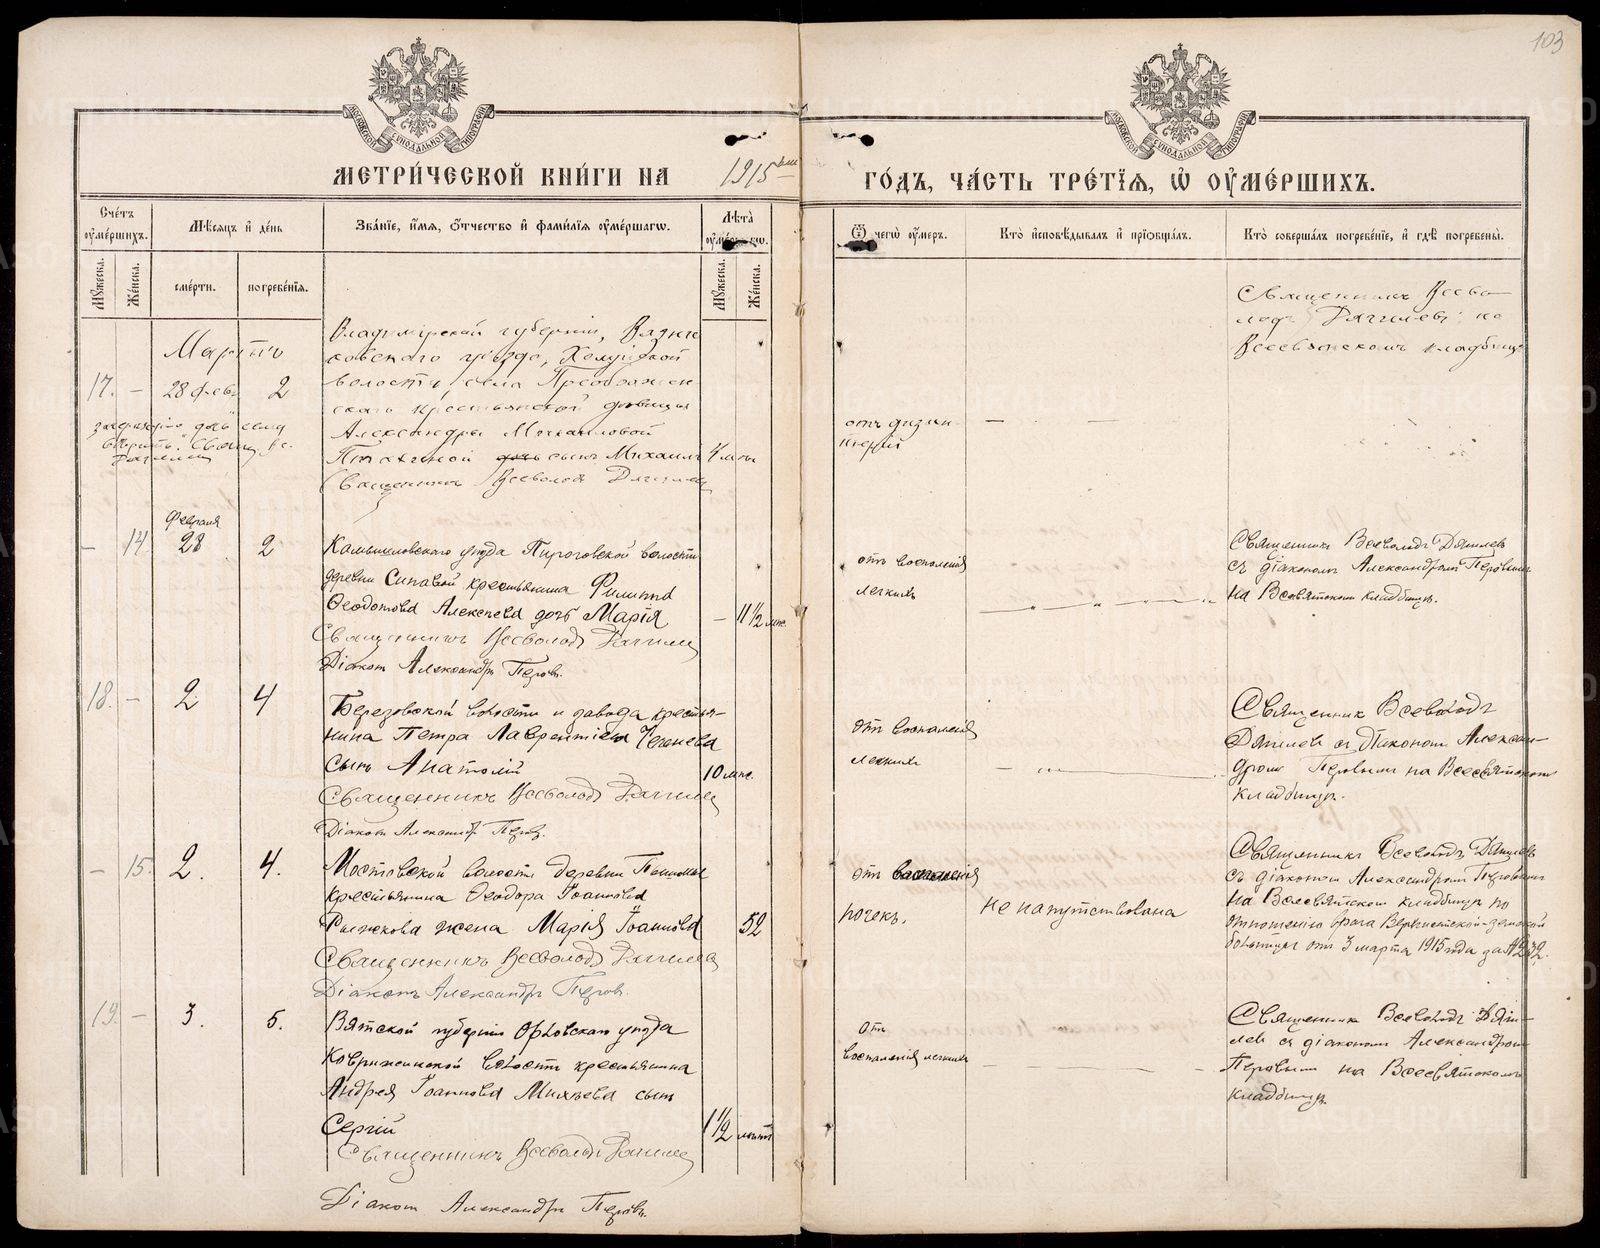 103
МЕТРИ́ЧЕСКОЙ КНИ́ГИ НА 1915 ГО́ДЪ, ЧА́СТЬ ТРЕ́ТІЯ, Ѡ ОУМЕ́РШИХЪ.
Сче́тъ оумершихъ.
Мѣсяцъ и де́нь
Зва́нїе, и́мя, о́тчество и фами́лїя оуме́ршагѡ.
Лѣта̀
Ѿ чегѡ̀ оу́меръ.
Кто̀ исповѣ́дывалъ и прїобща́лъ.
Кто̀ соверша́лъ погребе́нїе, и гдѣ̀ погребены̀.
Мꙋжеска.
Же́нска.
сме́рти.
погребе́нїя.
Мꙋжеска.
Же́нска.
Мартъ
17. – 28 февр 2
Владимірской губерніи, Вязни-
ковскаго уѣзда, Холуйской
волости, села Преображен-
скаго крестьянской дѣвицы
Александры Михаиловой
сынъ Михаилъ
Священникъ Всеволодъ Дягилев
4 м
–
Священникъ Всево-
лодъ Дягилевъ на
Всесвятскомъ кладбищѣ
– 14. Февраля 28 2
Камышловскаго уѣзда Пироговской волости
деревни крестьянина Филиппа
Ѳеодотова Алексѣева дочь Марія
Священникъ Всеволодъ Дягилев
Діаконъ Александръ Перовъ.
– 11 1/2 мѣс.
отъ воспаленія
легкихъ
Священникъ Всеволодъ Дягилевъ
съ діакономъ Александромъ Перовымъ
на Всесвятскомъ кладбищѣ.
18. – 2 4
Березовской волости и завода крестья-
нина Петра Лаврентіева
сынъ Анатолій
10 мѣс.
Священникъ Всеволодъ Дягилев
Діаконъ Александръ Перовъ.
отъ воспаленія
легкихъ
Священникъ Всеволодъ
Дягилевъ съ діакономъ Алексан-
дромъ Перовымъ на Всесвятскомъ
кладбищѣ.
– 15. 2. 4.
Мостовской волости деревни
крестьянина Ѳеодора Іоаннова
Рыжкова жена Марія Іоаннова
52
Священникъ Всеволодъ Дягилев
Діаконъ Александръ Перовъ.
отъ воспаленія
почекъ.
не напутствована
Священникъ Всеволодъ Дягилевъ
съ діакономъ Александромъ Перовымъ
на Всесвятскомъ кладбищѣ по
отношенію врача
больницы отъ 3 марта 1915 года за № 232.
19. – 3. 5.
Вятской губерніи Орловскаго уѣзда
волости крестьянина
Андрея Іоаннова Михѣева сынъ
Сергій
1 1/2
Священникъ Всеволодъ Дягилев
Діаконъ Александръ Перовъ.
отъ
воспаленія легкихъ
Священникъ Всеволодъ Дяги-
левъ съ діакономъ Александромъ
Перовымъ на Всесвятскомъ
кладбищѣ.